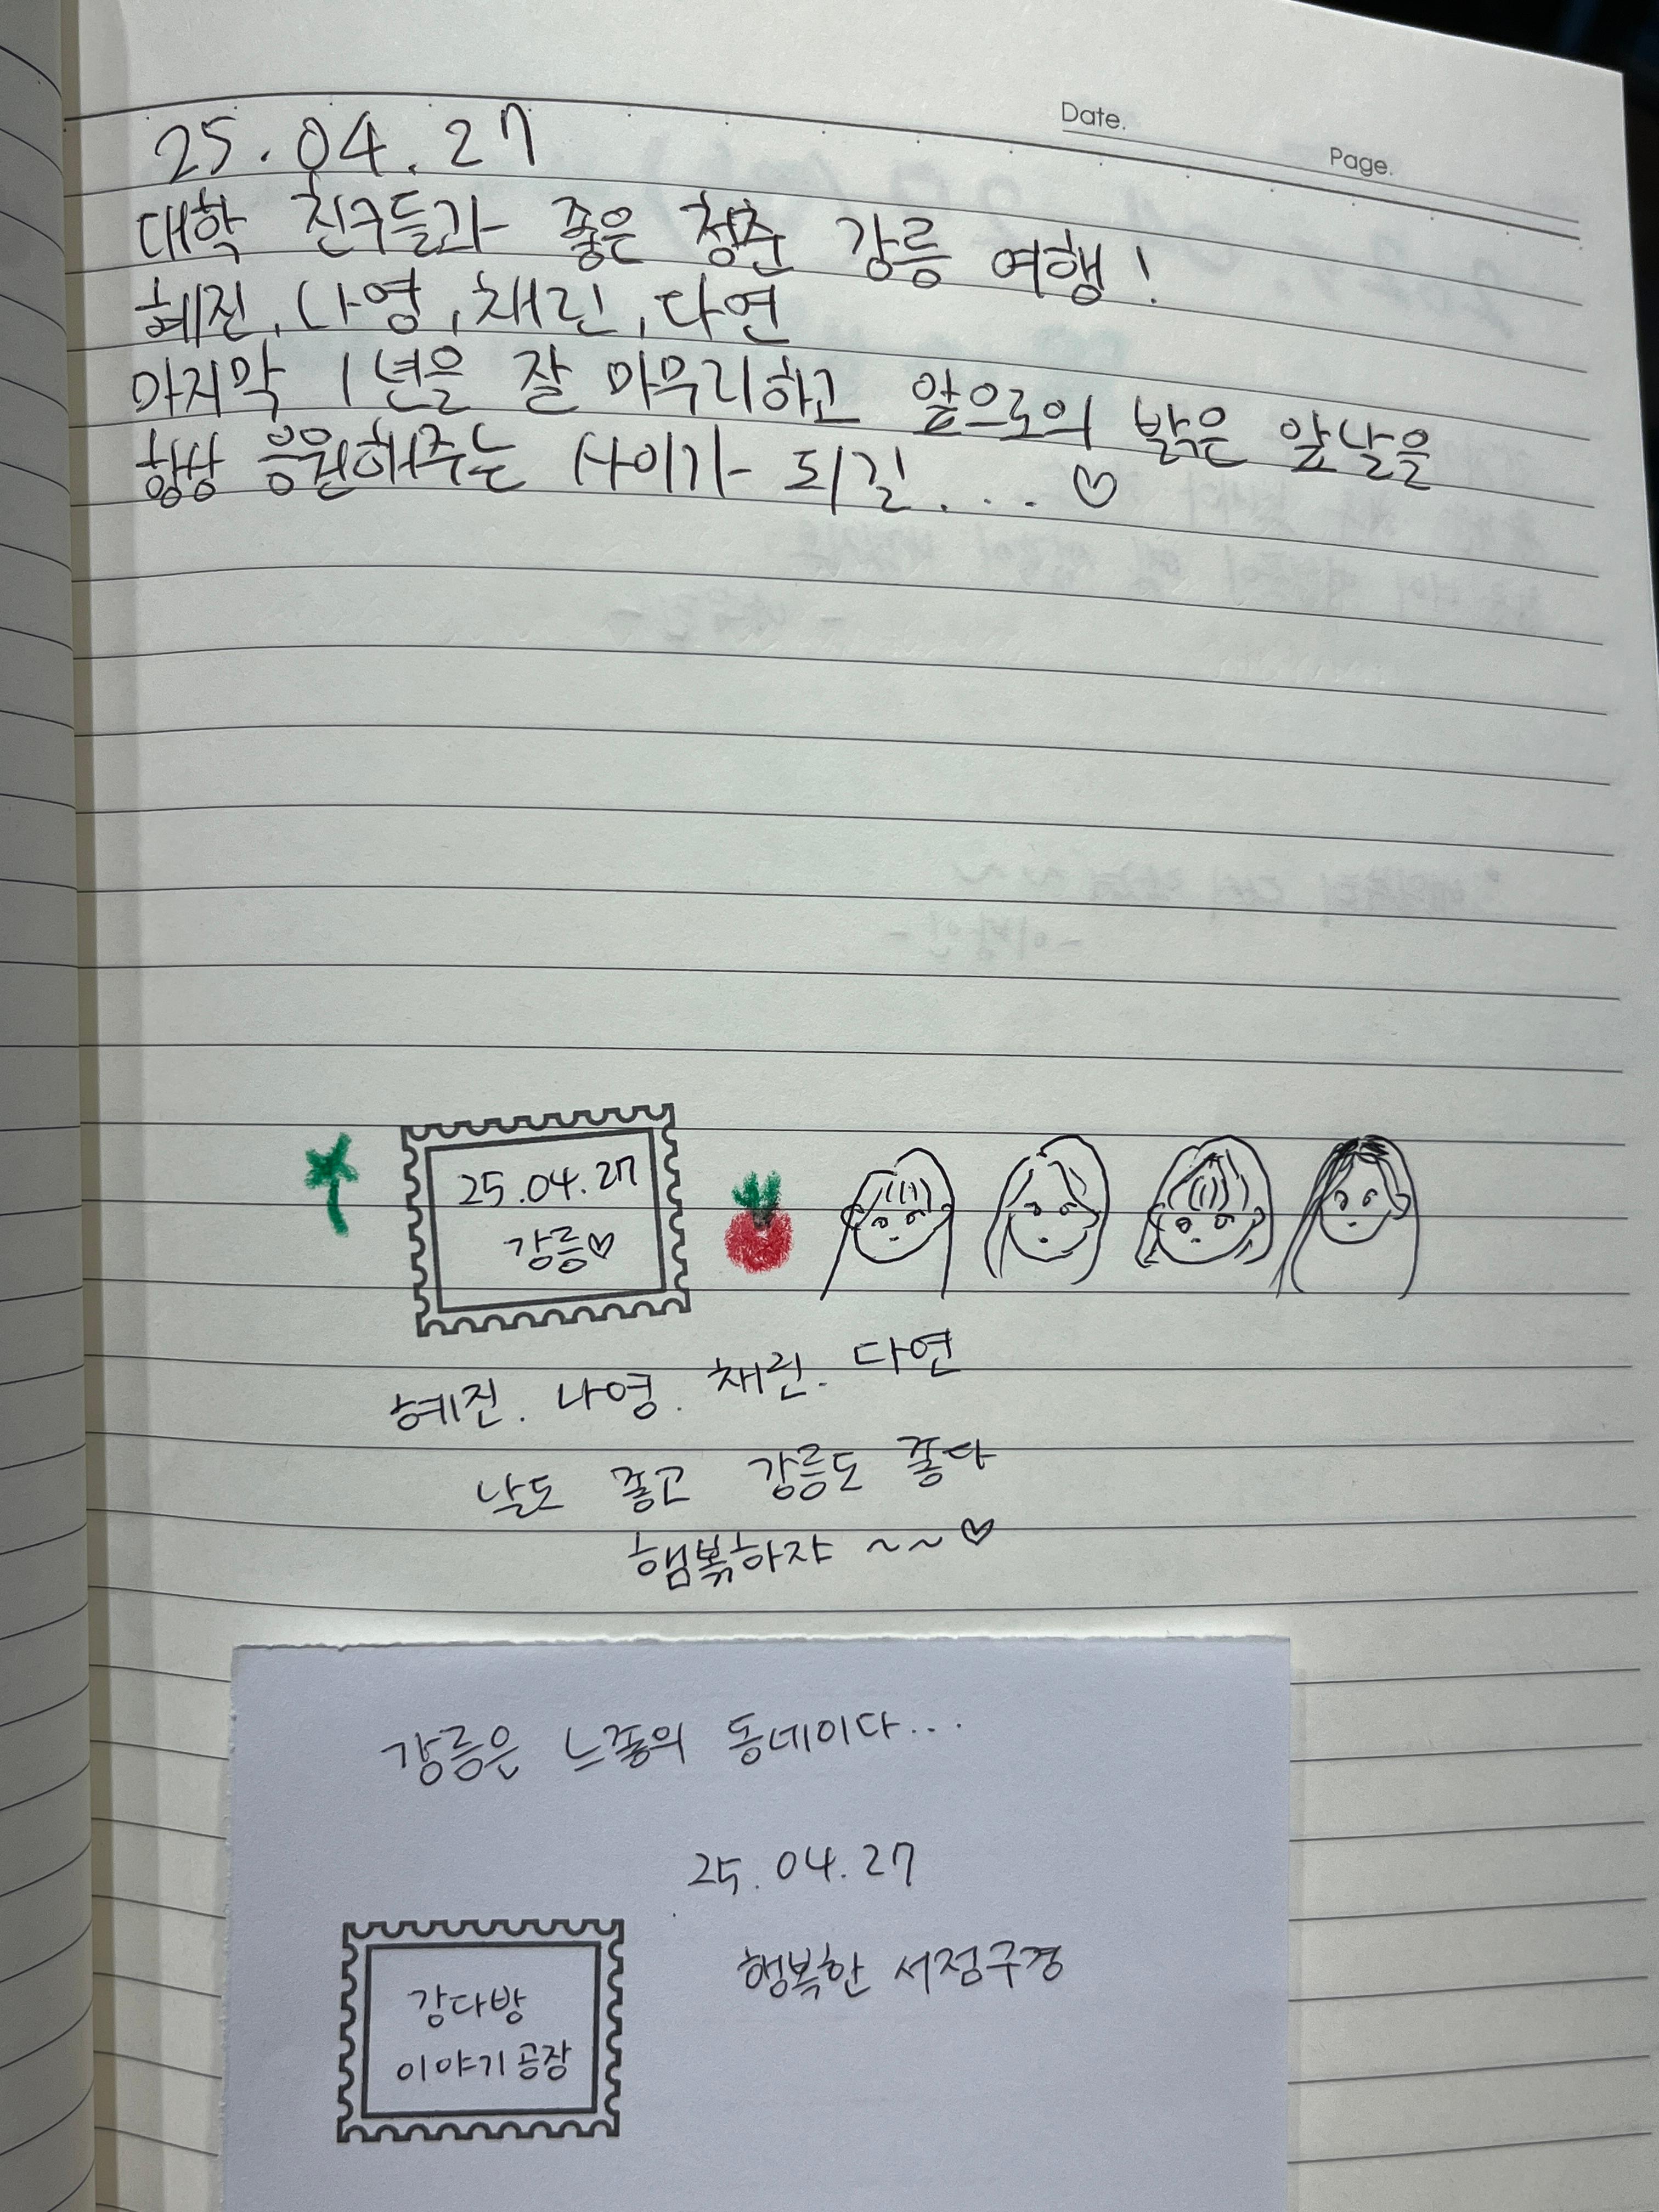 Date.
Page.
25.04.27
대학 친구들과 좋은 청춘 강릉 여행!
혜진, 나영, 채린, 다연
마지막 1년을 잘 마무리하고 앞으로의 밝은 앞날을
항상 응원해주는 사이가 되길... ♡
25.04.27
강릉♡
혜진. 나영. 채린. 다연
날도 좋고 강릉도 좋다
행복하쟈 ~~♡
강릉은 느좋의 동네이다...
25.04.27
행복한 서점구경
강다방
이야기공장